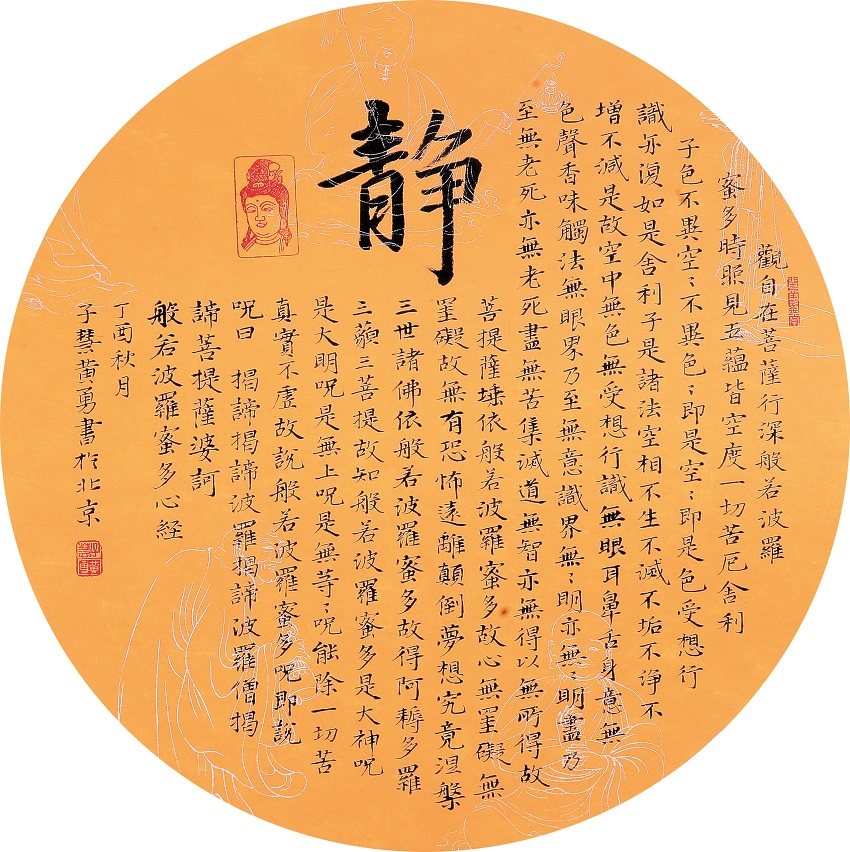 静
觀自在菩薩行深般若波羅
蜜多時照見五蘊皆空度一切苦厄舍利
子色不異空〻不異色〻即是空〻即是色受想行
識亦復如是舍利子是諸法空相不生不滅不垢不淨不
增不減是故空中無色無受想行識無眼耳鼻舌身意無
色聲香味觸法無眼界乃至無意識界無〻明亦無〻明盡乃
至無老死亦無老死盡無苦集滅道無智亦無得以無所得故
菩提薩埵依般若波羅蜜多故心無罣礙無
罣礙故無有恐怖遠離顛倒夢想究竟涅槃
三世諸佛依般若波羅蜜多故得阿耨多羅
三藐三菩提故知般若波羅蜜多是大神呪
是大明呪是無上呪是無等〻呪能除一切苦
真實不虛故說般若波羅蜜多呪即說
呪曰 揭諦揭諦波羅揭諦波羅僧揭
諦菩提薩婆訶
般若波羅蜜多心経
丁酉秋月
子慧黄勇書於北京